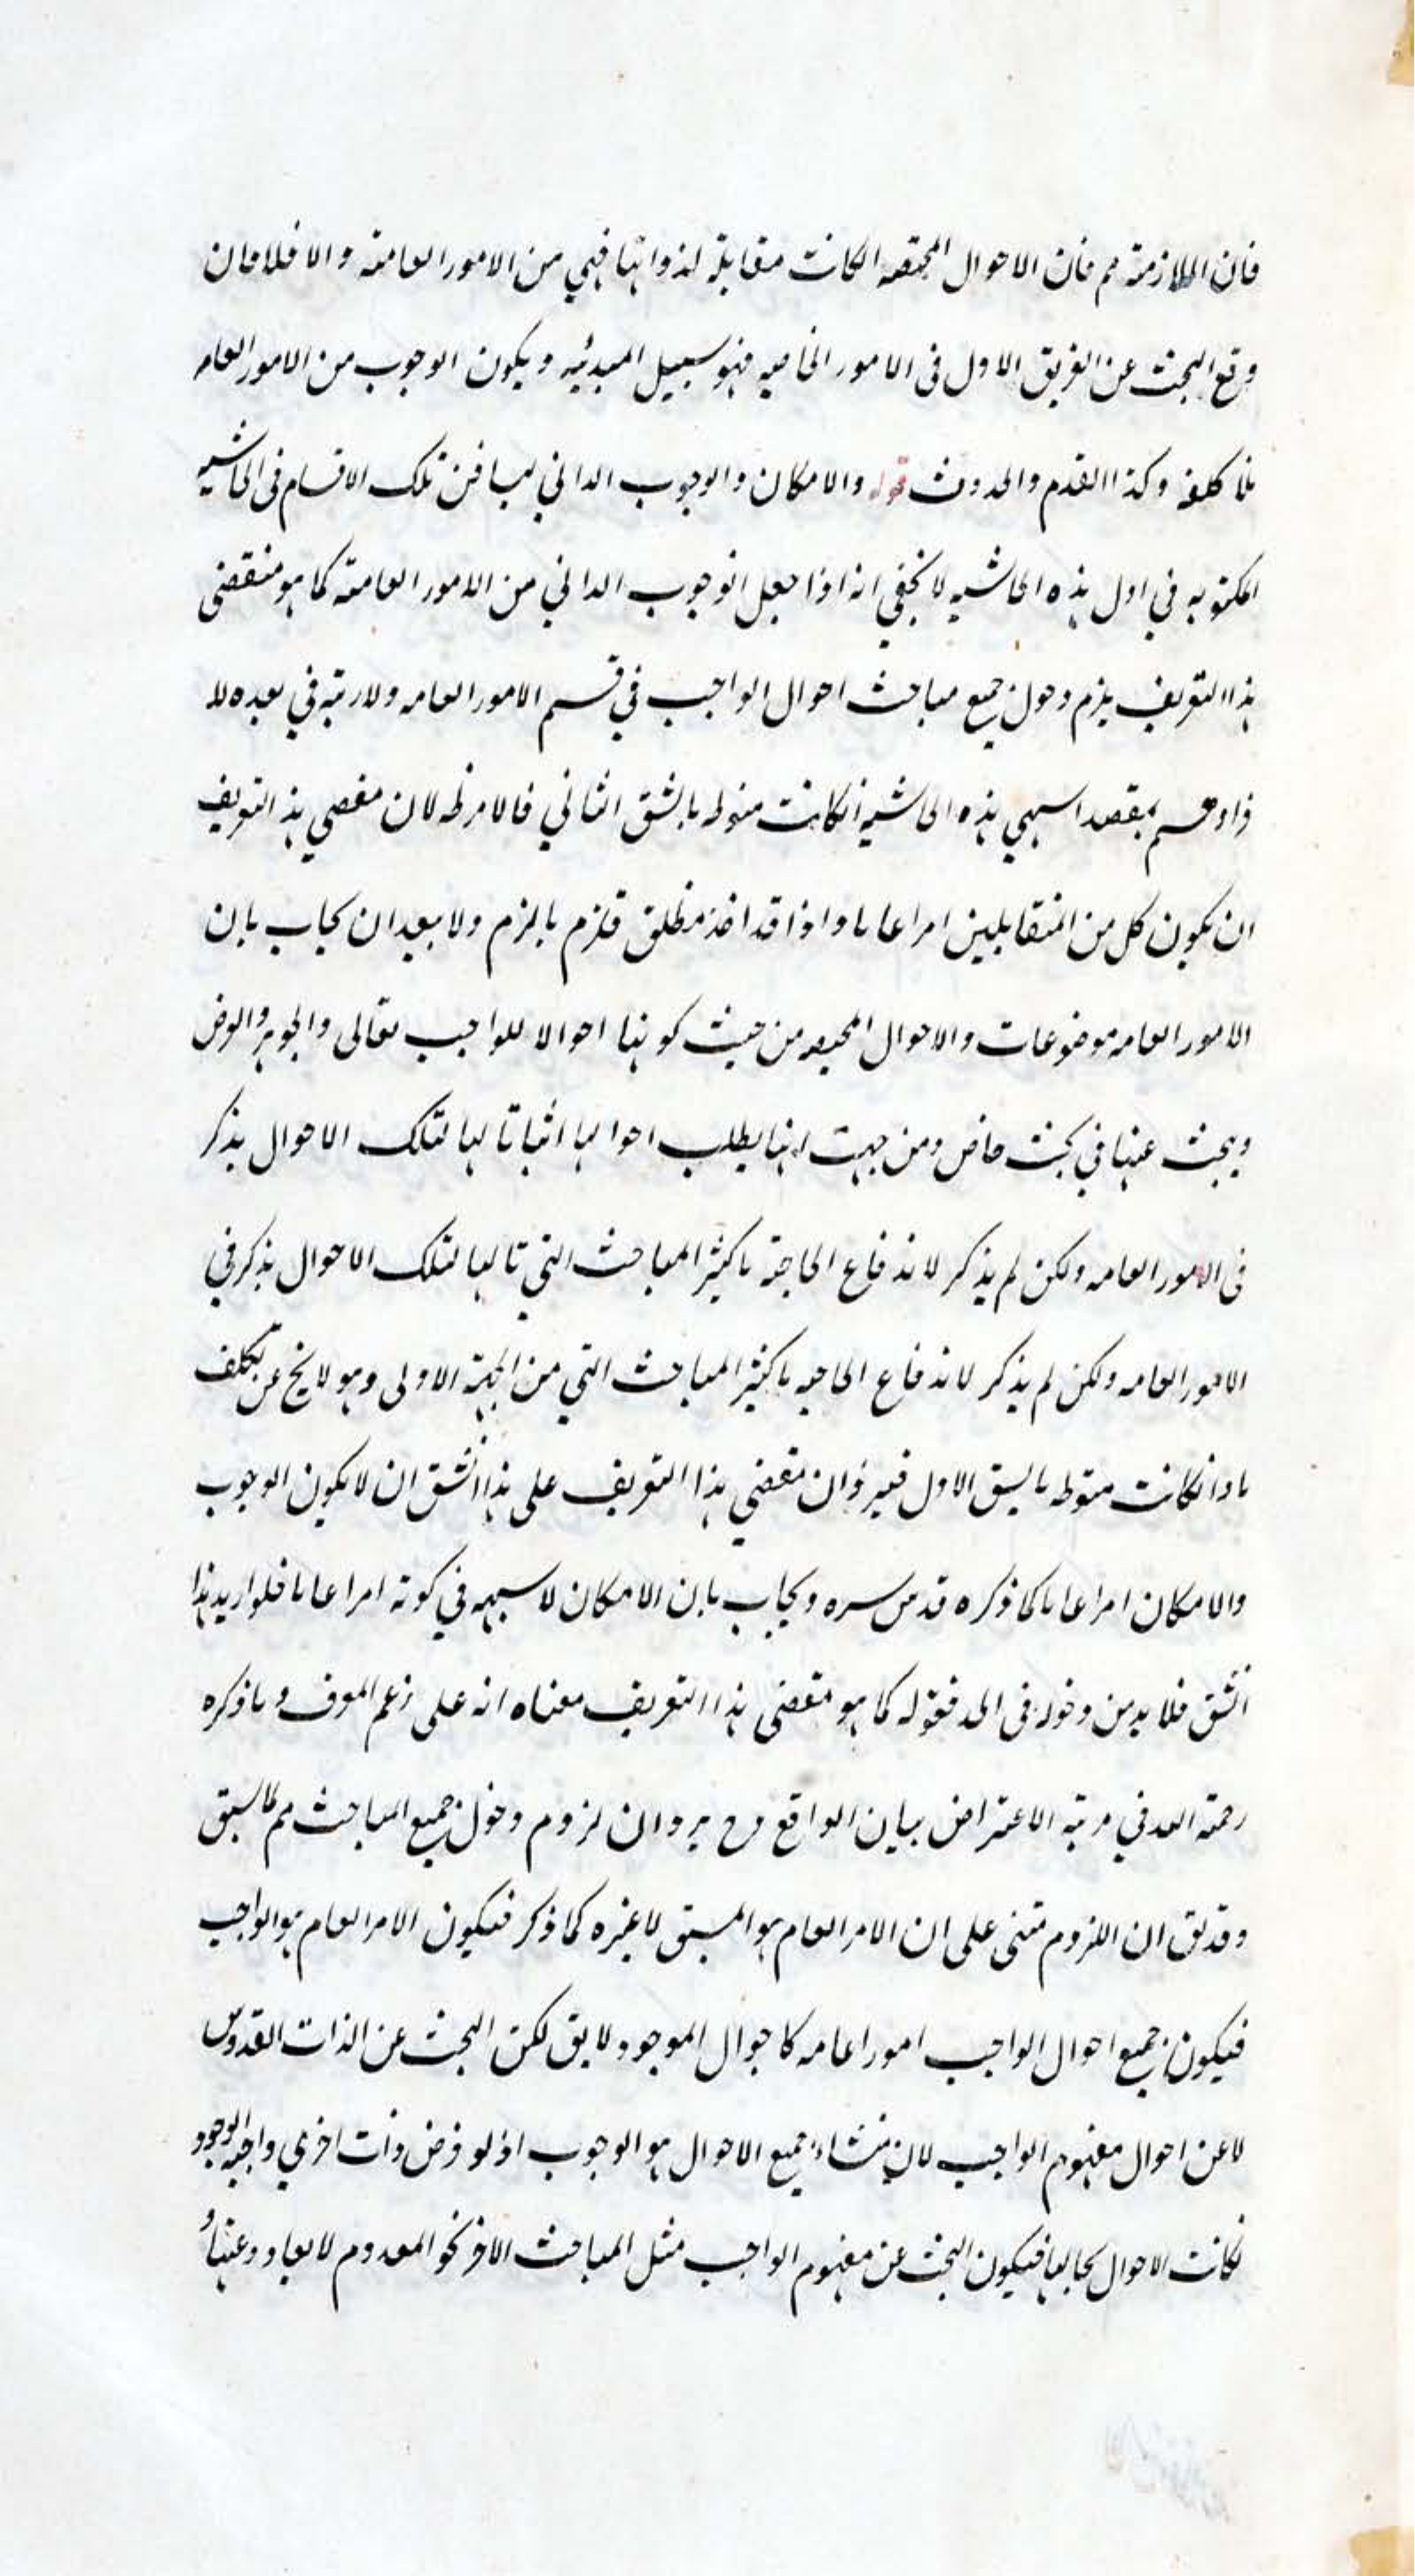 فان الملازمة مم فان الاحوال المختصه انكانت مقابلة لذواتها فهي من الامور العامة والا فلا فان
وقع البحث عن الفريق الاول فى الامور الخاصه فهو سبيل المبدئيه ويكون الوجوب من الامور العامه
بلا كلفه وكذا القدم والحدوث قوله والامكان والوجوب الذاتي ليسا من تلك الاقسام فى الحاشيه
المكتوبه في اول هذه الحاشيه لا يخفي انه اذا جعل الوجوب الذاتي من الامور العامة كما هو منقضى
هذا التعريف يلزم دخول جميع مباحث احوال الواجب في قسم الامور العامه ولا ريبة في بعده
بقصد اسهي هذه الحاشيه انكانت منوله بالشق الثاني فالامر ظه لان مقضي هذ التعريف
ان يكون كل من المتقابلين امرا عاما واذا قد اخذ مطلق فلزم مالزم ولا يبعد ان يجاب بان
الامور العامه موضوعات والاحوال المختصه من حيث كونها احوالا للواجب تعالى والجوهر والعرض
ويبحث عنها في بحث خاص ومن جهت انها يطلب احوالها اثباتا لها لتلك الاحوال يذكر
فى الامور العامه ولكن لم يذكر لاندفاع الحاجة باكثر المباحث التي تا لها لتلك الاحوال يذكر في
الامور العامه ولكن لم يذكر لاندفاع الحاجه باكثر المباحث التي من الجهة الاولى وهو لا يخ عن تكلف
ما وانكانت منوطه بالشق الاول فيرد ان مقضي هذا التعريف على هذا الشق ان لا يكون الوجوب
والامكان امرا عاما كما ذكره قدس سره ويجاب بان الامكان لا شبهه في كونه امرا عاما فلو اريد هذا
الشق فلا بد من دخوله فى الحد فقوله كما هو مقضى هذا التعريف معناه انه على زعم المعرف وما ذكره
رحمة الله في مرتبه الاعتراض بيان الواقع وح يرد ان لزوم دخول جميع المباحث مم لما سبق
وقد يق ان اللزوم متنى على ان الامر العام هو المشتق لا غيره كما ذكر فيكون الامر العام هو الواجب
فيكون جميع احوال الواجب امورا عامه كاحوال الموجود لا يق لكن البحث عن الذات القدوس
لا عن احوال مفهوم الواجب لان منشاء جميع الاحوال هو الوجوب اذ لو فرض ذات اخري واجبه الوجود
لكانت الاحوال بحالها فيكون البحث عن مفهوم الواجب مثل المباحث الاخر نحو المعدوم لا يعاد وعنها